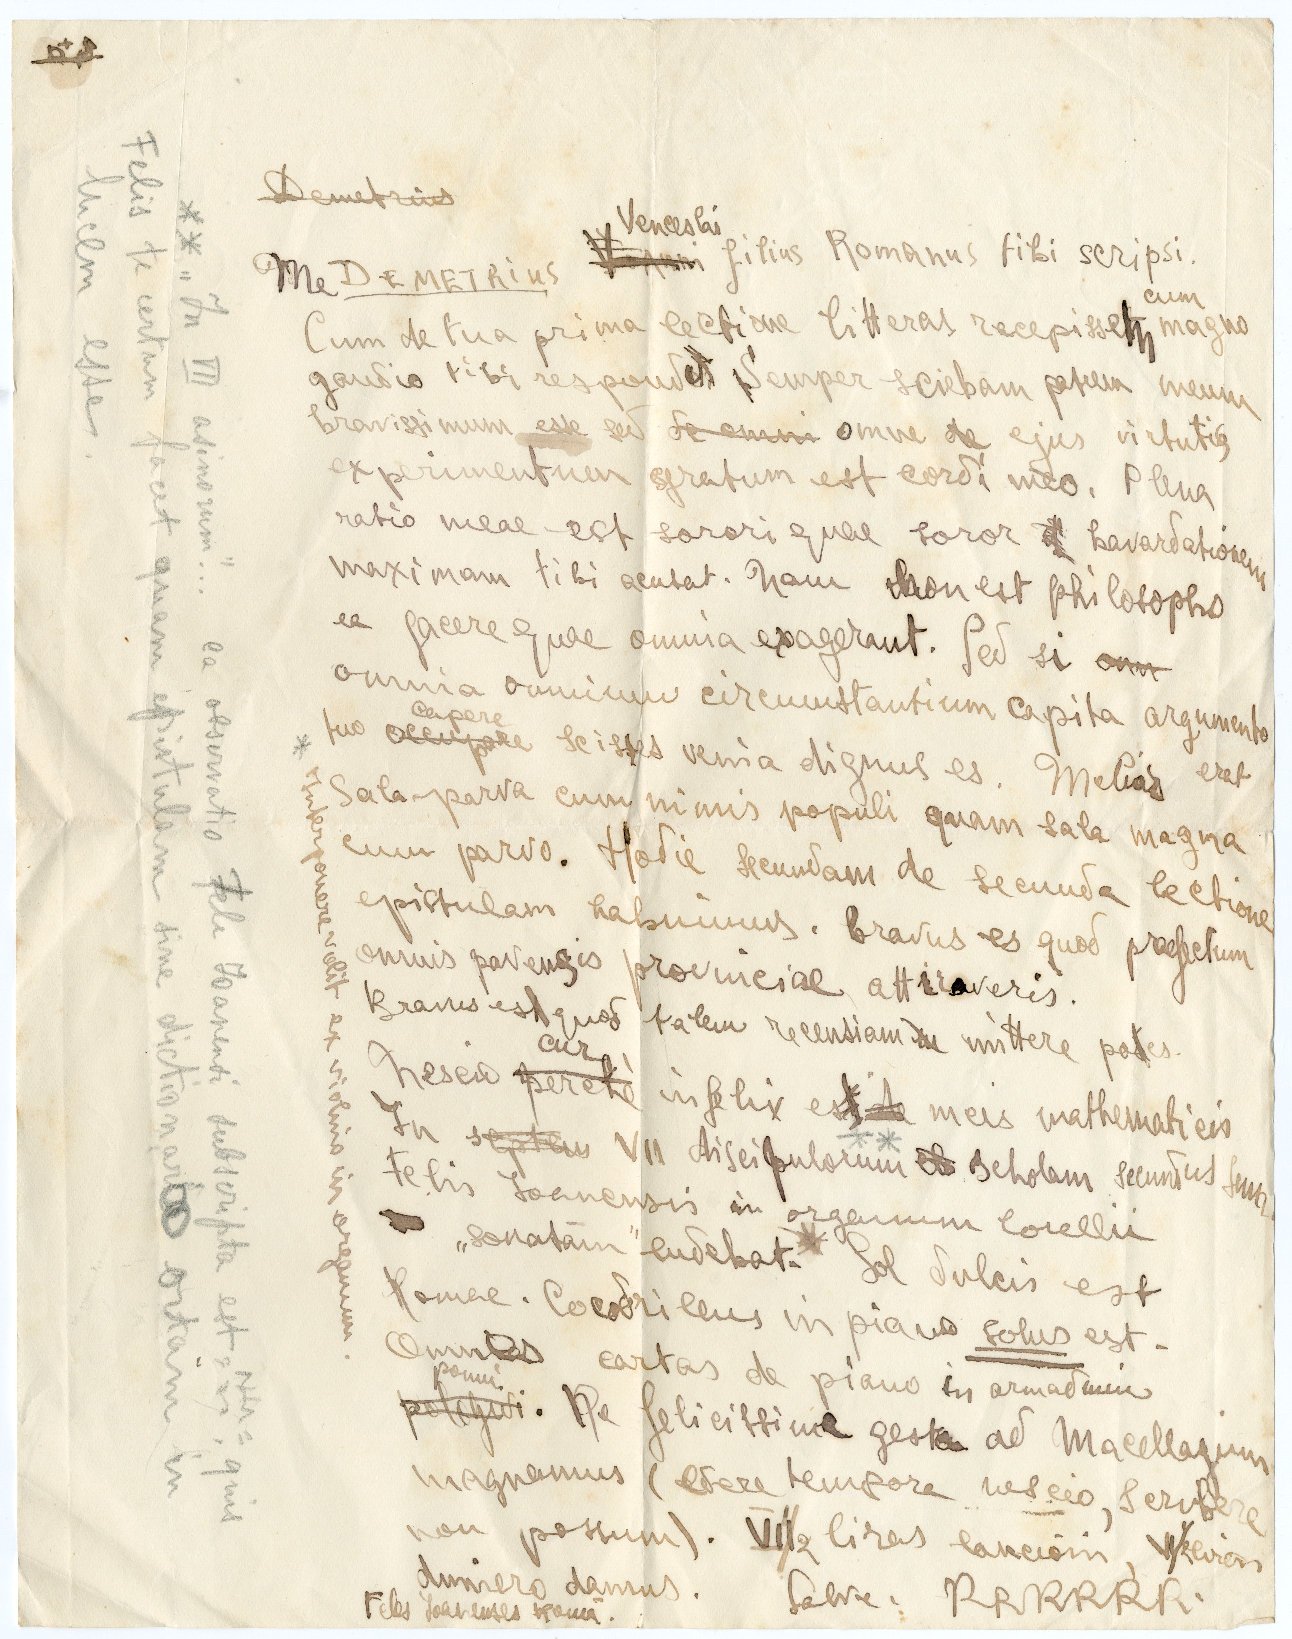 Demetrius
Venceslai
Me DEMETRIUS filius Romanus tibi scripsi.
cum
Cum de tua prima lectione litteras recepissem magno
gaudio tibi respondet Semper sciebam patrem meum
bravissimum esse sed de omni omne de ejus virtutis
experimentum gratum est cordi meo. Plena
ratio meae est sorori quae soror bavardationem
maximam tibi acusat. Nam non est philosopho
ea facere quae omnia exagerant. Sed si omn
omnia omnium circumstantium capita argumento
capere
tuo occupare scistes venia dignus es. Melius erat
Sala parva cum nimis populi quam sala magna
cum parvo. Hodie secundam de secunda lectione
epistulam habuimus. Bravus es quod praefectum
omnis pavensis provinciae attiraveris.
Bravus est quod talem recensiam mittere potes.
cur
Nescio perchè infelix es meis mathematicis
In septem VII discipulorum scholam secundus sum.
Felis Joanensis in organum Corellii
"sonatam" ludebat. * Sol dulcis est
Romae. Cocodrilus in piano solus est.
Omnes cartas de piano in armadium
posui.
De felicissima gesta ad Macellarium
magnamus (edere tempore nescio, scribere
non possum). VII/2 liras
dumero damus. Salve. RRRRRR.
Feles Joanenses Romā.
* interponere volit ex violino in organum.
** "In VII asinorum"... ea observatio Feli Joanensi subscripta est, quis
Felis te certum facet quam epistulam sine dictionario ortam in
lucem esse.